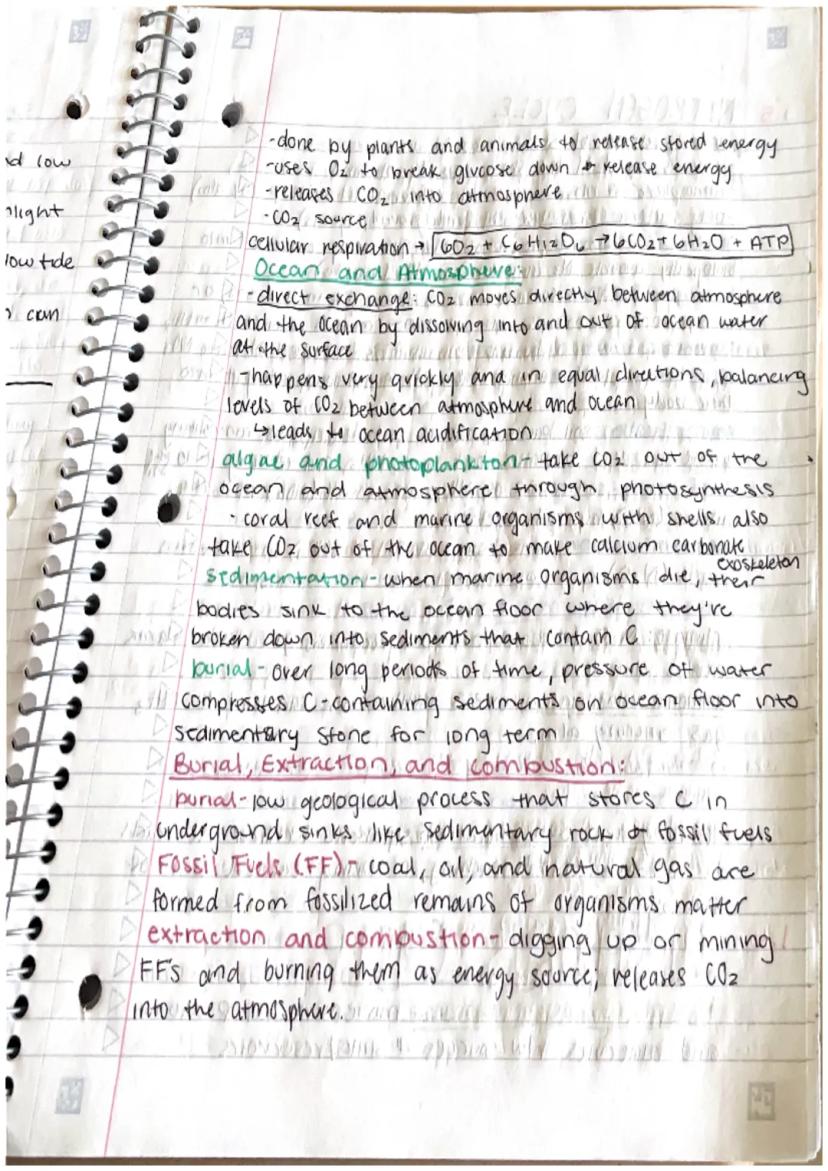 nd low
nlight
low tide
can
-done by plants and animals to release stored energy
-uses O2 to break glucose down + release energy
-releases CO2 into atmosphere
-CO2 source
cellular respiration → 6O2 + C6H12O6 → 6CO2 + 6H2O + ATP
Ocean and Atmosphere:
-direct exchange: CO2 moves directly between atmosphere
and the ocean by dissolving into and out of ocean water
at the surface
-happens very quickly and in equal directions, balancing
levels of CO2 between atmosphere and ocean
↳leads to ocean acidification
algae and photoplankton- take CO2 out of the
ocean and atmosphere through photosynthesis
- coral reef and marine organisms with shells also
take CO2 out of the ocean to make calcium carbonate
exoskeleton
sedimentation-when marine organisms die, their
bodies sink to the ocean floor where they're
broken down into sediments that contain C
burial-over long periods of time, pressure of water
compresses C-containing sediments on ocean floor into
sedimentary stone for long term
Burial, Extraction, and combustion:
burial-low geological process that stores C in
underground sinks like sedimentary rock or fossil fuels
Fossil Fuels (FF)- coal, oil, and natural gas are
formed from fossilized remains of organisms matter
extraction and combustion- digging up or mining
FFs and burning them as energy source; releases CO2
into the atmosphere.